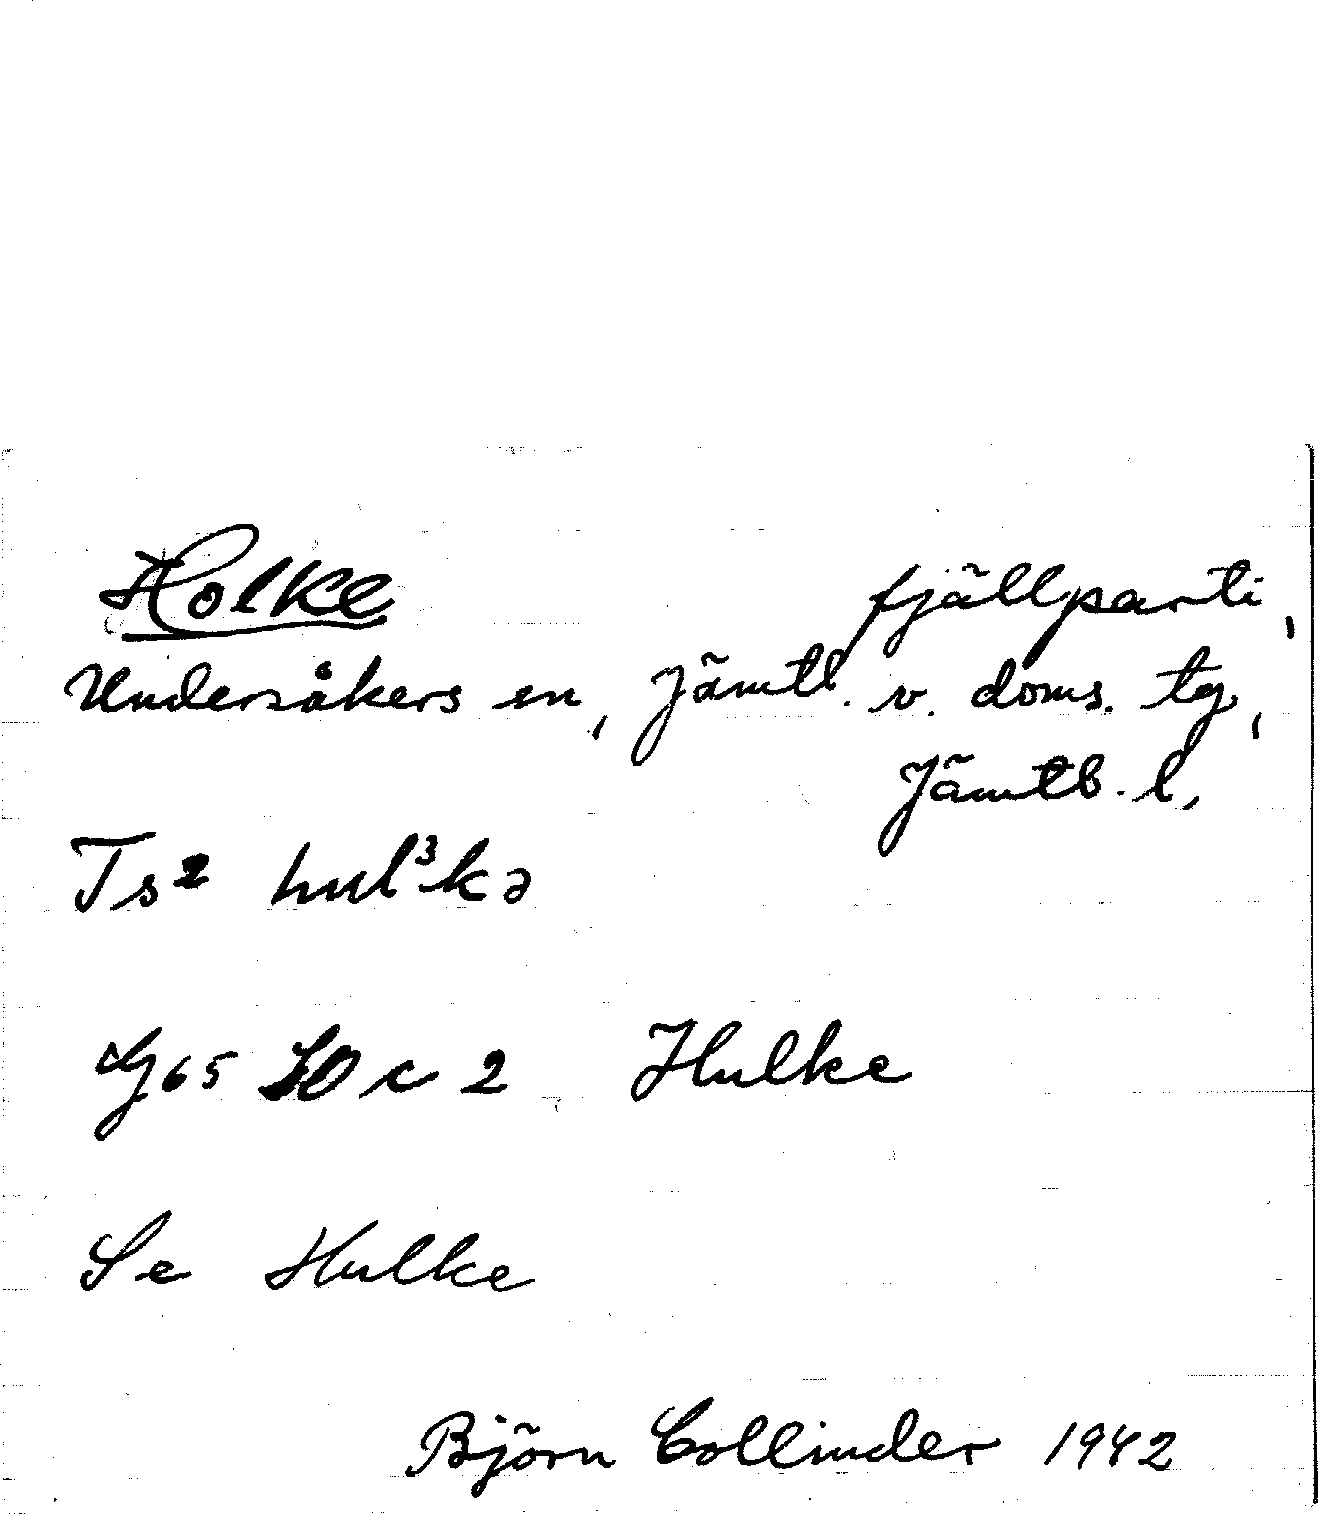 Holke fjällparti,
Undersåkers sn, Jämtl. v. doms. tg,
Jämtb. l.
Ts2 hul³kə
Lg65 SO c 2 Hulke
Se Hulke
Björn Collinder 1942